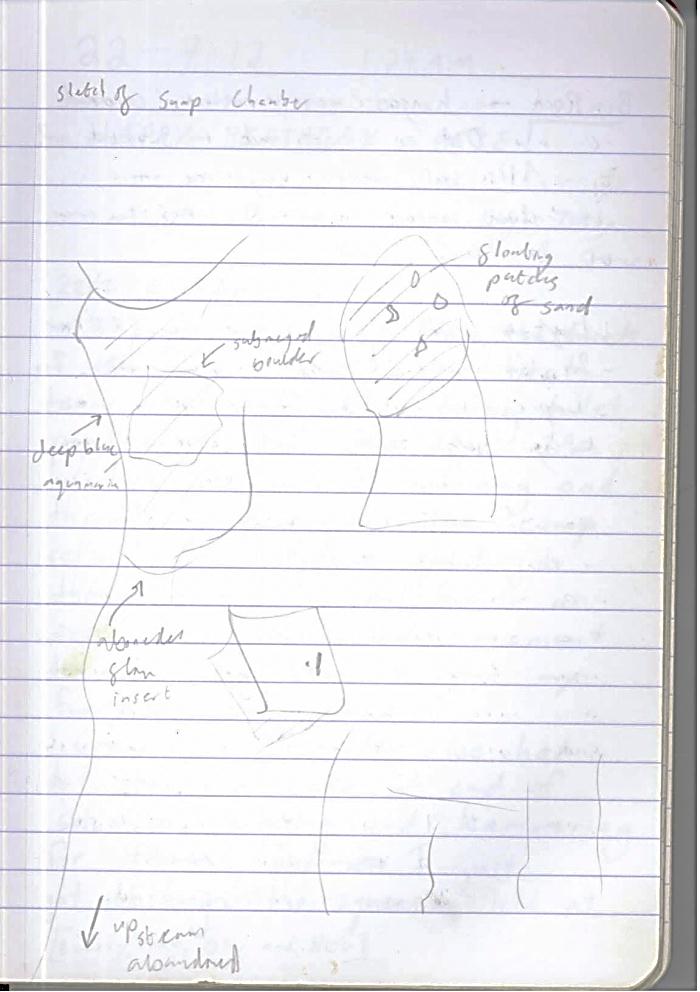 sketch of Sump Chamber
floating
patches
of sand
submerged
boulder
deep blue
aquamarin
insert
upstream
abandoned